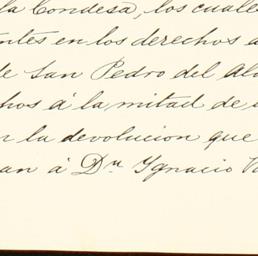 la Condesa, los cuales
ntes en los derechos a
de San Pedro del Al
chos á la mitad de
la devolucion que
an á Dn Ygnacio V